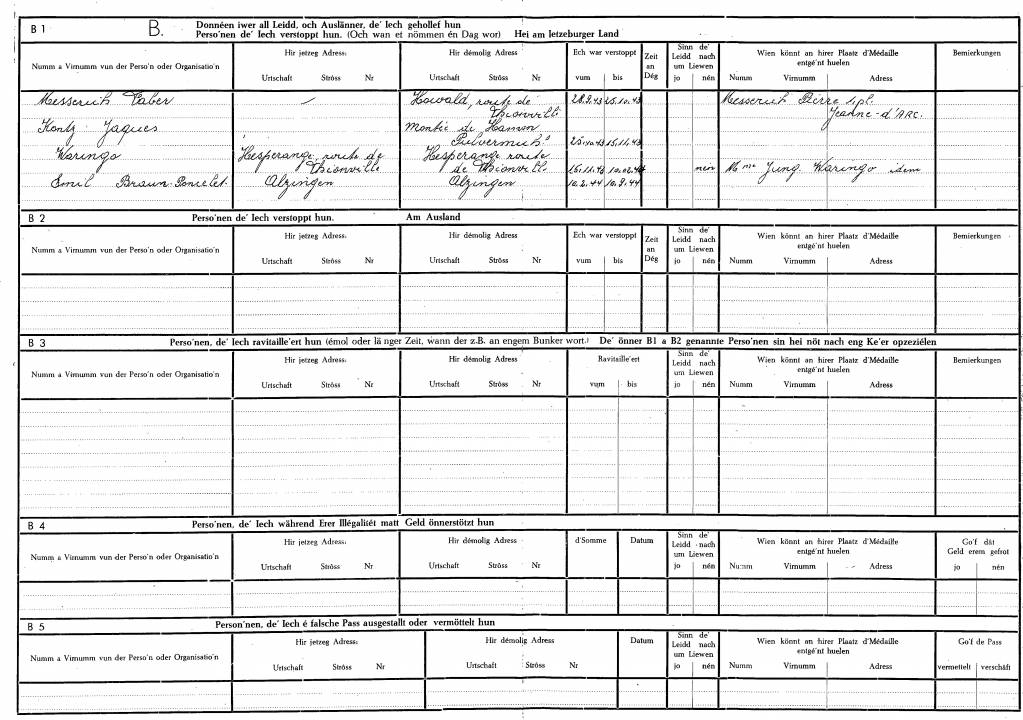 B 1 B. Donnéen iwer all Leidd, och Auslänner, de' Iech gehollef hun
Perso'nen de' Iech verstoppt hun. (Och wan et nömmen én Dag wor) Hei am letzeburger Land
Numm a Virnumm vun der Perso'n oder Organisatio'n Hir jetzeg Adress: Urtschaft Ströss Nr Hir démolig Adress Urtschaft Ströss Nr Ech war verstoppt vum bis Zeit an Dég Sinn de' Leidd nach um Liewen jo nén Wien könnt an hirer Plaatz d'Médaille entgé'nt huelen Numm Virnumm Adress Bemierkungen
Messerich Faber — Howald, route de 28.9.43 25.10.43 Messerich Pierre spl.
Thionville Jeanne-d'ARC.
Kontz Jaques Montée de Hamm
Pulvermuhl 25.10.43 15.11.43
Waringo Hesperange, route de Hesperange route
Thionville de Thionville 15.11.43 10.02.44 nén Mme Jung. Waringo idem
Emil Braun-Poncelet. Alzingen Alzingen 10.2.44 10.9.44
B 2 Perso'nen de' Iech verstoppt hun. Am Ausland
Numm a Virnumm vun der Perso'n oder Organisatio'n Hir jetzeg Adress: Urtschaft Ströss Nr Hir démolig Adress Urtschaft Ströss Nr Ech war verstoppt vum bis Zeit an Dég Sinn de' Leidd nach um Liewen jo nén Wien könnt an hirer Plaatz d'Médaille entgé'nt huelen Numm Virnumm Adress Bemierkungen
B 3 Perso'nen, de' Iech ravitaille'ert hun (émol oder länger Zeit, wann der z.B. an engem Bunker wort.) De' önner B1 a B2 genannte Perso'nen sin hei nöt nach eng Ke'er opzeziélen
Numm a Virnumm vun der Perso'n oder Organisatio'n Hir jetzeg Adress: Urtschaft Ströss Nr Hir démolig Adress Urtschaft Ströss Nr Ravitaille'ert vum bis Sinn de' Leidd nach um Liewen jo nén Wien könnt an hirer Plaatz d'Médaille entgé'nt huelen Numm Virnumm Adress Bemierkungen
B 4 Perso'nen, de' Iech während Erer Illégalitét matt Geld önnerstötzt hun
Numm a Virnumm vun der Perso'n oder Organisatio'n Hir jetzeg Adress: Urtschaft Ströss Nr Hir démolig Adress Urtschaft Ströss Nr d'Somme Datum Sinn de' Leidd nach um Liewen jo nén Wien könnt an hirer Plaatz d'Médaille entgé'nt huelen Numm Virnumm Adress Go'f dât Geld erem gefrot jo nén
B 5 Person'nen, de' Iech é falsche Pass ausgestallt oder vermöttelt hun
Numm a Virnumm vun der Perso'n oder Organisatio'n Hir jetzeg Adress: Urtschaft Ströss Nr Hir démolig Adress Urtschaft Ströss Nr Datum Sinn de' Leidd nach um Liewen jo nén Wien könnt an hirer Plaatz d'Médaille entgé'nt huelen Numm Virnumm Adress Go'f de Pass vermettelt verschäft